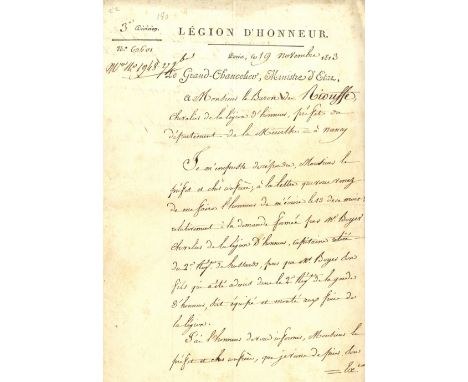 3e Division
LÉGION D'HONNEUR.
No 60601
Paris, le 19 novembre 1813
Le Grand-Chancelier, Ministre d'Etat,
A Monsieur le Baron de Riouffe,
chevalier de la légion d'honneur, préfet du
département de la Meurthe à nancy
Je m'empresse de répondre, Monsieur le
préfet et cher confrère, à la lettre que vous venez
de me faire l'honneur de m'écrire le 13 de ce mois
relativement à la demande formée par Mr Boyer
chevalier de la légion d'honneur, capitaine
du 2e Régt de hussards, pour que Mr Boyer son
fils qui a été admis dans le 2e Régt de la garde
d'honneur, soit équipé et monté aux frais de
la légion.
J'ai l'honneur de vous informer, Monsieur le
préfet et cher confrère, que je viens de faire